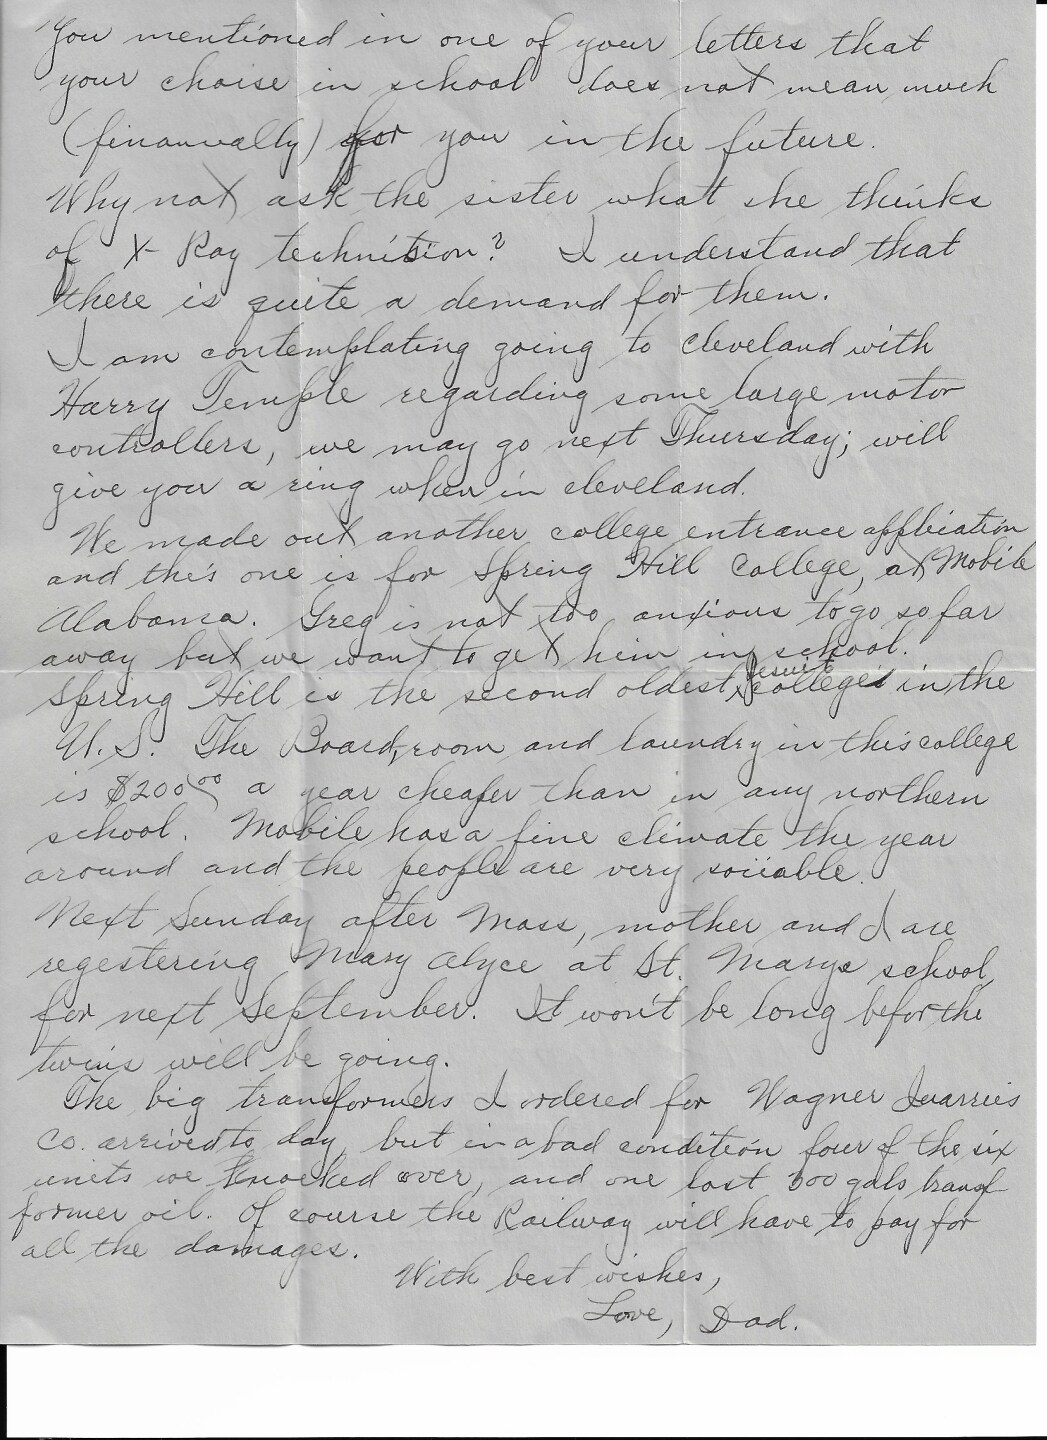 You mentioned in one of your letters that
your choise in school does not mean much
(finanually) for you in the future.
Why not ask the sister what she thinks
of X-Ray technision? I understand that
there is quite a demand for them.
I am contemplating going to Cleveland with
Harry Temple regarding some large motor
controllers, we may go next Thursday; will
give you a ring when in Cleveland.
We made out another college entrance appliation
and this one is for Spring Hill College, at Mobile
Alabama. Greg is not too anxious to go so far
away but we want to get him in school.
Spring Hill is the second oldest Jesuit college in the
U.S. The Board, room and laundry in this college
is $200.00 a year cheaper than in any northern
school. Mobile has a fine climate the year
around and the people are very soiiable.
Next Sunday after Mass, mother and I are
regestering Mary Alyce at St. Marys school,
for next September. It won't be long befor the
twins will be going.
The big transformers I ordered for Wagner Quarries
Co. arrived to day, but in a bad condition four of the six
units we knocked over, and one lost 300 gals transf
former oil. Of course the Railway will have to pay for
all the damages.
With best wishes,
Love, Dad.